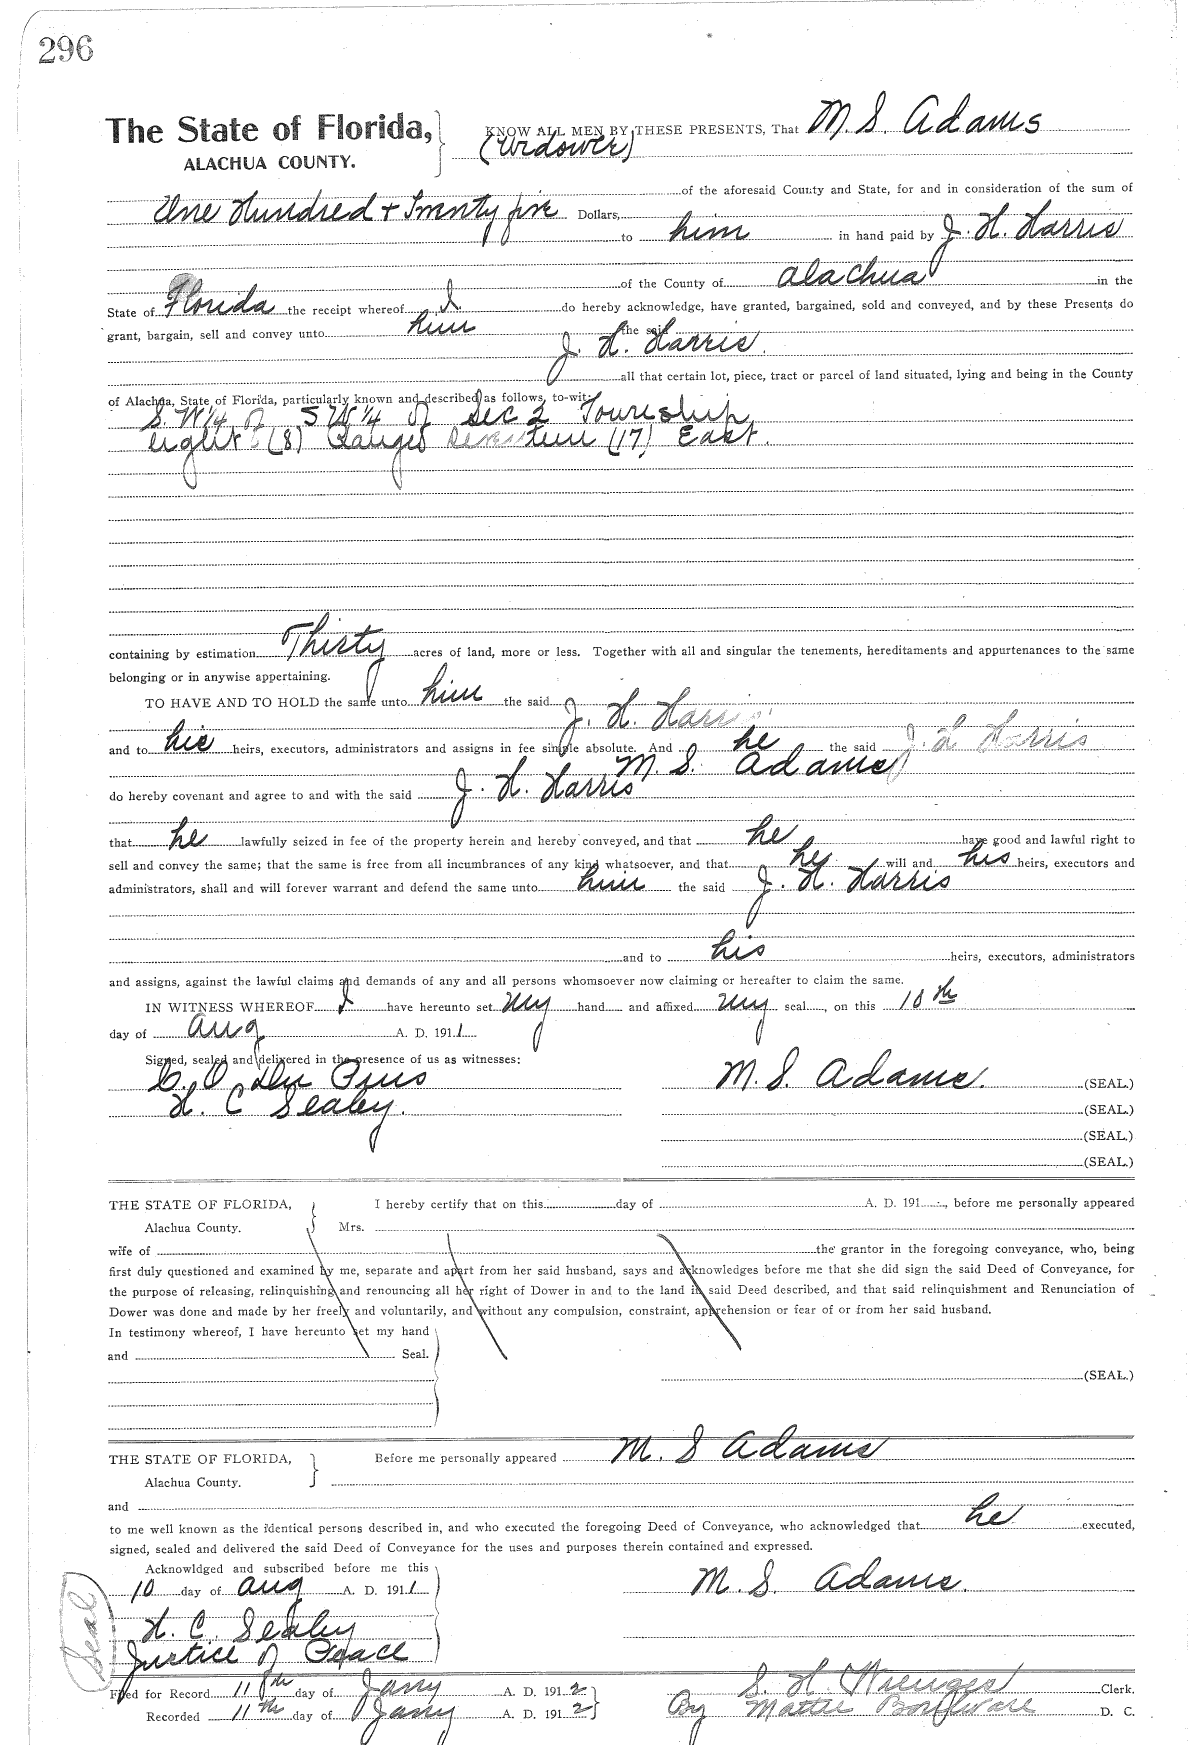 296
The State of Florida, KNOW ALL MEN BY THESE PRESENTS, That M. S. Adams
ALACHUA COUNTY. (Widower)
of the aforesaid County and State, for and in consideration of the sum of
One Hundred + Twenty five Dollars,
to him in hand paid by J. H. Harris
of the County of Alachua in the
State of Florida the receipt whereof I do hereby acknowledge, have granted, bargained, sold and conveyed, and by these Presents do
grant, bargain, sell and convey unto him the said
J. H. Harris.
all that certain lot, piece, tract or parcel of land situated, lying and being in the County
of Alachua, State of Florida, particularly known and described as follows, to-wit:
S. W 1/4 of S W 1/4 of Sec 2 Township
eight (8) Range Seventeen (17) East.
containing by estimation Thirty acres of land, more or less. Together with all and singular the tenements, hereditaments and appurtenances to the same
belonging or in anywise appertaining.
TO HAVE AND TO HOLD the same unto him the said J. H. Harris
and to his heirs, executors, administrators and assigns in fee simple absolute. And he the said J. H. Harris
M. S. Adams
do hereby covenant and agree to and with the said J. H. Harris
that he lawfully seized in fee of the property herein and hereby conveyed, and that he have good and lawful right to
sell and convey the same; that the same is free from all incumbrances of any kind whatsoever, and that he will and his heirs, executors and
administrators, shall and will forever warrant and defend the same unto him the said J. H. Harris
and to his heirs, executors, administrators
and assigns, against the lawful claims and demands of any and all persons whomsoever now claiming or hereafter to claim the same.
IN WITNESS WHEREOF I have hereunto set my hand and affixed my seal, on this 10th
day of Aug A. D. 1911
Signed, sealed and delivered in the presence of us as witnesses:
C. O. M. S. Adams. (SEAL.)
H. C Sealey. (SEAL.)
(SEAL.)
(SEAL.)
THE STATE OF FLORIDA, I hereby certify that on this day of A. D. 191 , before me personally appeared
Alachua County. Mrs.
wife of the grantor in the foregoing conveyance, who, being
first duly questioned and examined by me, separate and apart from her said husband, says and acknowledges before me that she did sign the said Deed of Conveyance, for
the purpose of releasing, relinquishing and renouncing all her right of Dower in and to the land in said Deed described, and that said relinquishment and Renunciation of
Dower was done and made by her freely and voluntarily, and without any compulsion, constraint, apprehension or fear of or from her said husband.
In testimony whereof, I have hereunto set my hand
and Seal.
(SEAL.)
THE STATE OF FLORIDA, Before me personally appeared M. S Adams
Alachua County.
and
to me well known as the identical persons described in, and who executed the foregoing Deed of Conveyance, who acknowledged that he executed,
signed, sealed and delivered the said Deed of Conveyance for the uses and purposes therein contained and expressed.
Acknowldged and subscribed before me this
10 day of Aug A. D. 1911 M. S. Adams.
H. C. Sealey
Justice of Peace
Seal
Filed for Record 11th day of Jany A. D. 1912 S. H. Wienges Clerk.
Recorded 11th day of Jany A. D. 1912 By Mattie Boulware D. C.